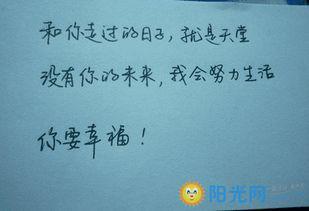 和你走过的日子，就是天堂
没有你的未来，我会努力生活
你要幸福！
阳光网